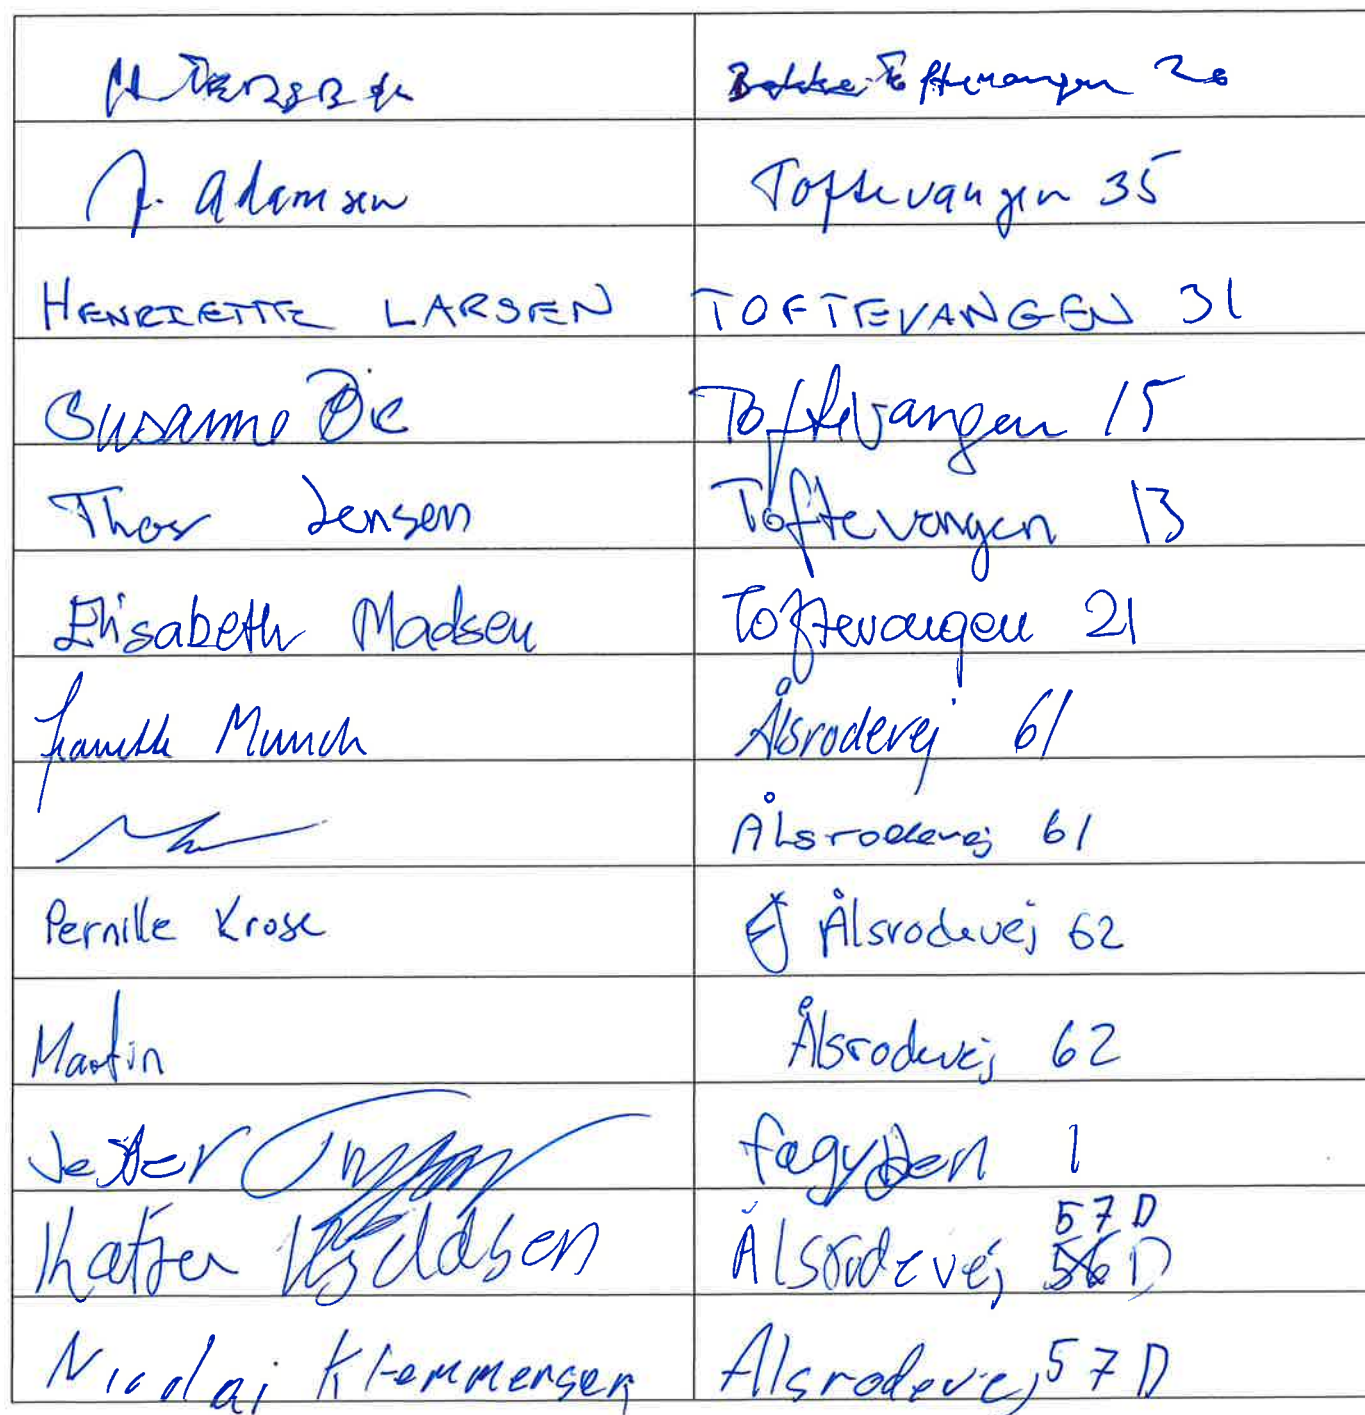 Toftevangen 20
J. Adamsen Toftevangen 35
HENRIETTE LARSEN TOFTEVANGEN 31
Susanne Toftevangen 15
Thor Jensen Toftevangen 13
Elisabeth Madsen Toftevangen 21
Jeanette Munch Ålsrodevej 61
Ålsrodevej 61
Pernille Krose Ålsrodevej 62
Martin Ålsrodevej 62
1
57 D
Katja Ålsrodevej
Nicolai Klemmensen Alsrodevej 57 D